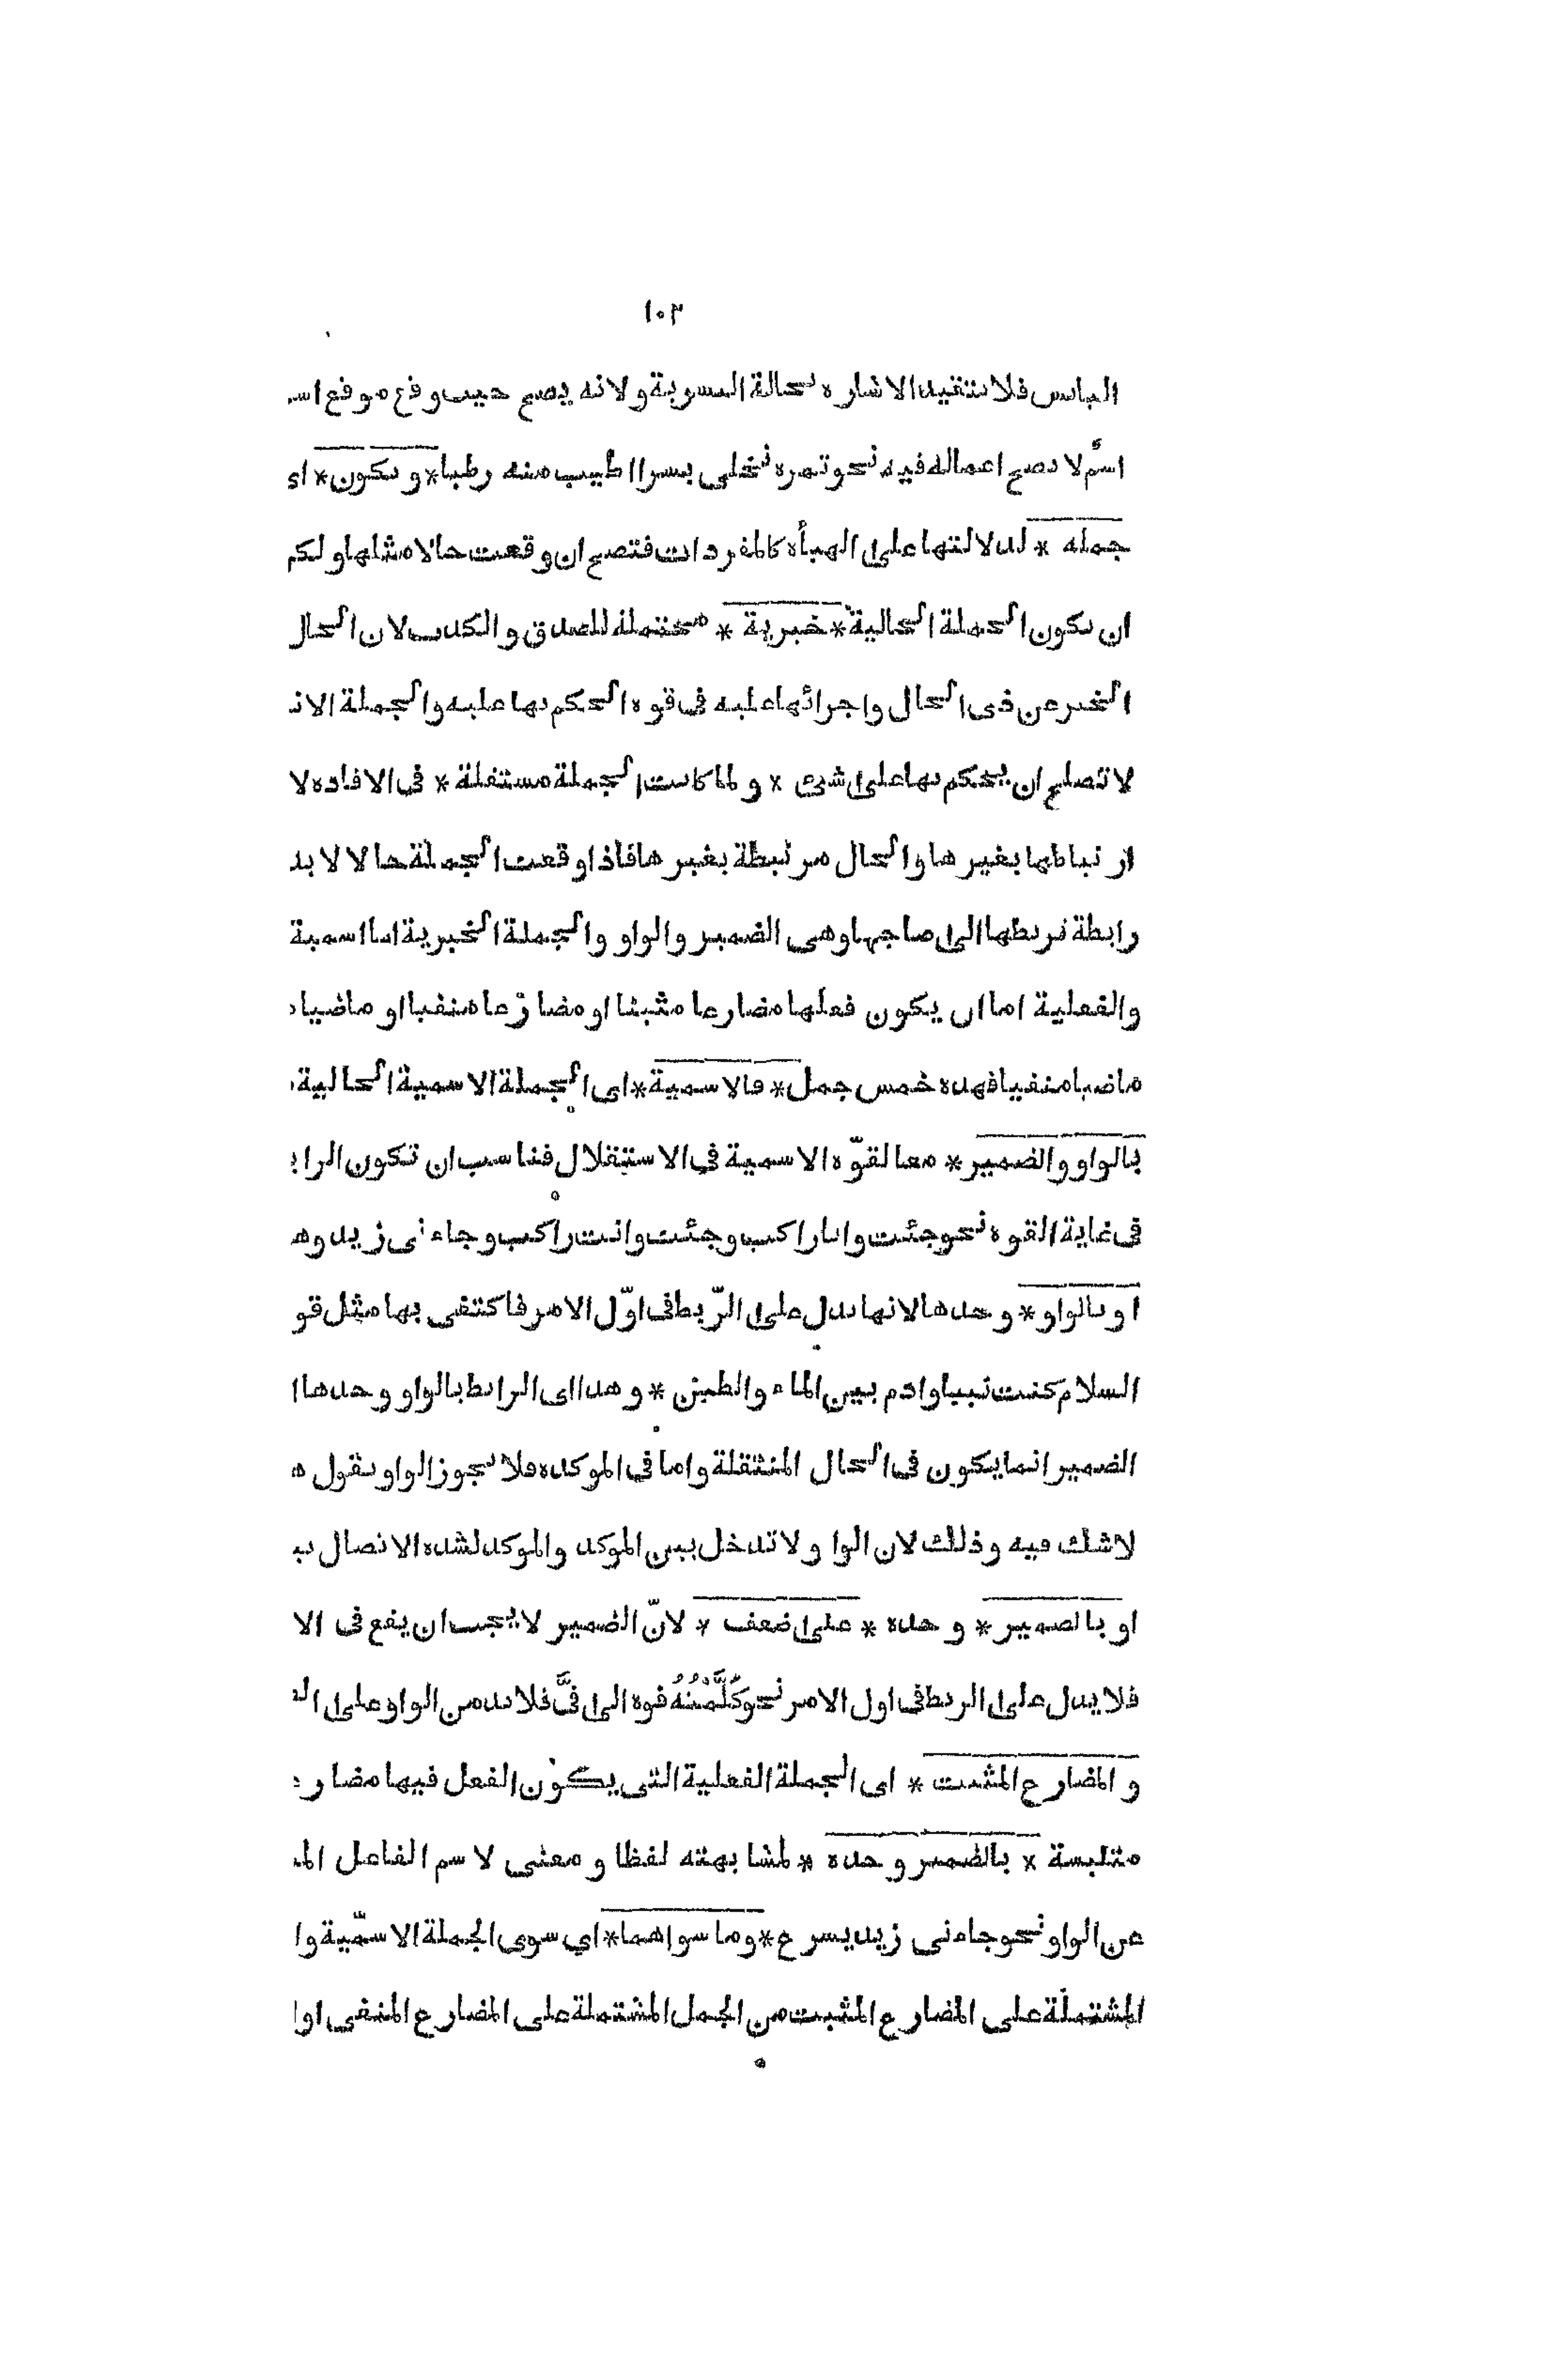 ١٠٣
اليابس فلا تتقيد الاشارة بحالة البسرية ولانه يصح حيث وقع موقع اسم
اسمٌ لا يصح اعماله فيه نحو تمرة نخلى بسرا اطيب منه رطبا * و يكون * اى
جملة * لدلالتها على الهيأة كالمفردات فتصح ان وقعت حالا مثلها ولكن
ان يكون الجملة الحالية * خبرية * محتملة للصدق و الكذب لان الحال
الخبر عن ذى الحال واجرائها عليه فى قوة الحكم بها عليه والجملة الا
لا تصلح ان يحكم بها على شئ * و لما كانت الجملة مستقلة * فى الافادة لا
ارتباطها بغيرها والحال مرتبطة بغيرها فاذا وقعت الجملة حالا لا بد
رابطة تربطها الى صاحبها وهى الضمير والواو والجملة الخبرية اما اسمية
والفعلية اما ان يكون فعلها مضارعا مثبتا او مضارعا منفيا او ماضيا
ماضيا منفيا فهذه خمس جمل * فالاسمية * اى الجملة الاسمية الحالية
بالواو والضمير * معا لقوّة الاسمية فى الاستقلال فناسب ان تكون الرا
فى غاية القوة نحو جئت وانا راكب وجئت وانت راكب وجاءنى زيد وه
او بالواو * وحدها لانها تدل على الرّبط فى اوّل الامر فاكتفى بها مثل قو
السلام كنت نبيا وادم بين الماء والطين * و هذا اى الرابط بالواو وحدها ا
الضمير انما يكون فى الحال المنتقلة واما فى الموكدة فلا تجوز الواو تقول ه
لاشك فيه وذلك لان الوا و لا تدخل بين الموكد والموكد لشدة الاتصال ب
او بالضمير * و حده * على ضعف * لانّ الضمير لا يجب ان يقع فى الا
فلا يدل على الربط فى اول الامر نحو كَلَّمْتُهُ فوه الى فىَّ فلا بد من الواو على ال
و المضارع المثبت * اى الجملة الفعلية التى يكون الفعل فيها مضار
متلبسة * بالضمير وحده * لمشابهته لفظا و معنى لاسم الفاعل الم
عن الواو نحو جاءنى زيد يسرع * وما سواهما * اي سوى الجملة الاسمّية وا
المشتملة على المضارع المثبت من الجمل المشتملة على المضارع المنفى او ا